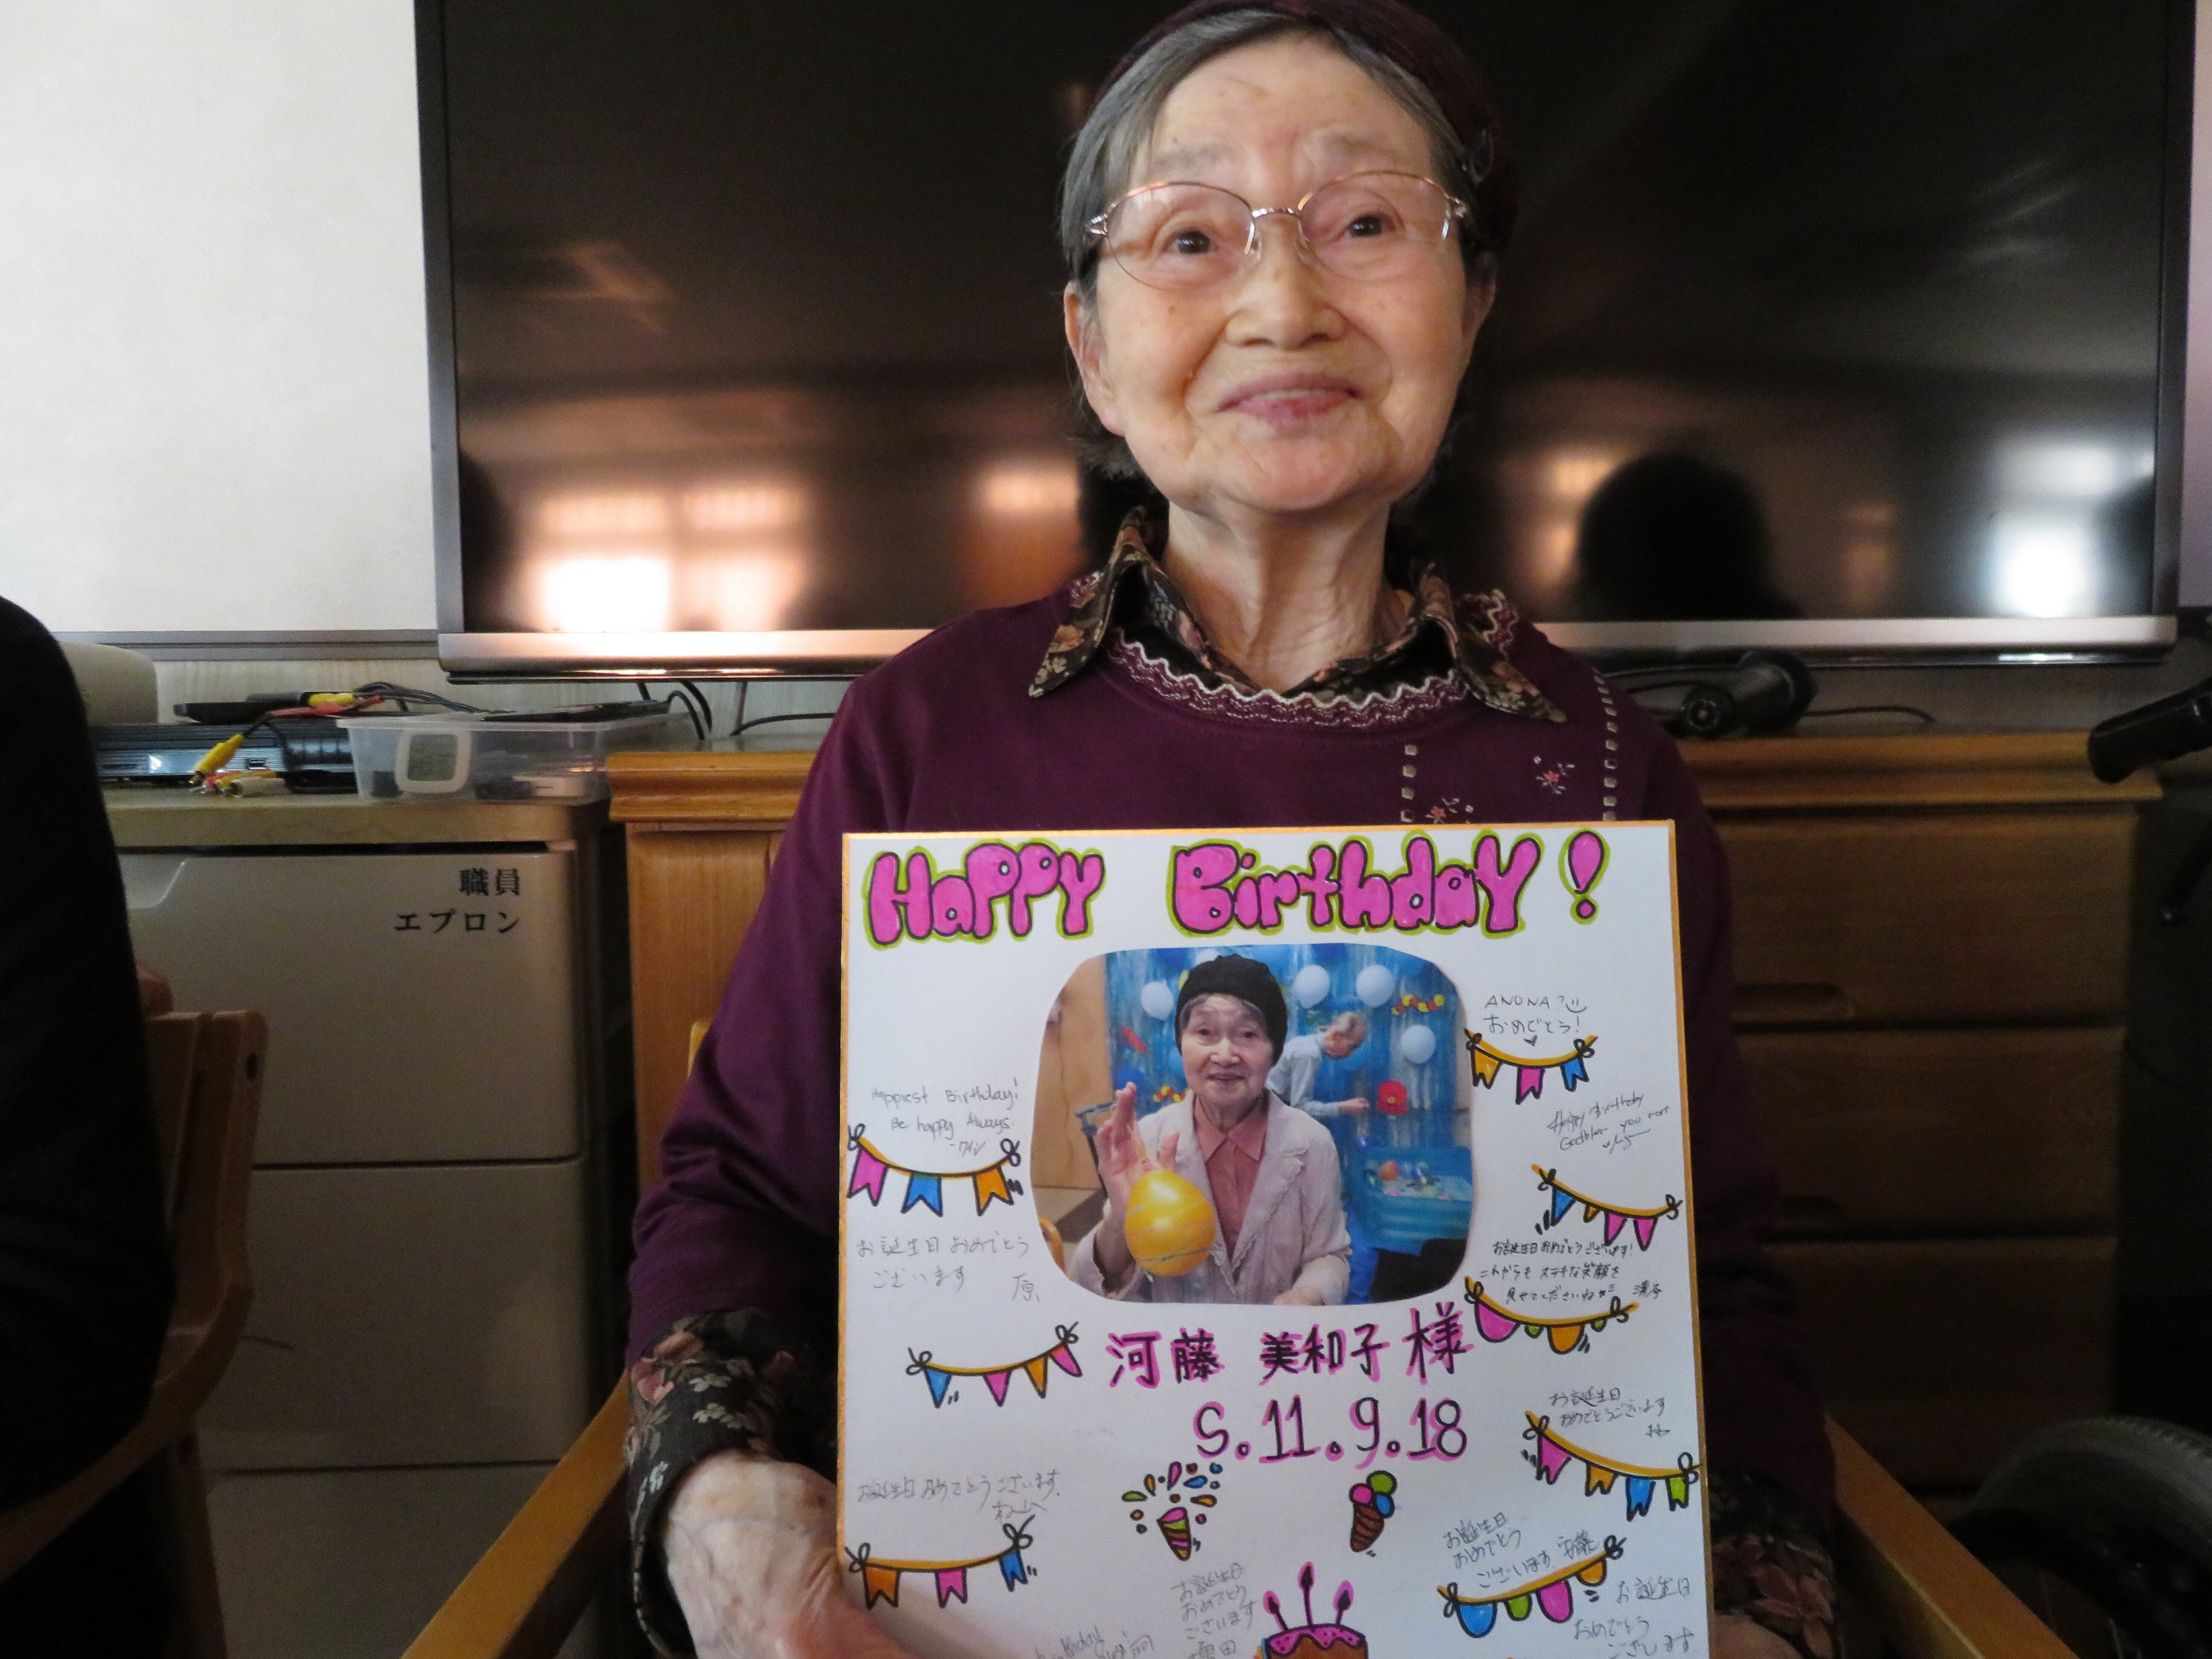 職員
エプロン
Happy Birthday!
ANONA?
おめでとう!
Happiest Birthday!
Be happy Always.
Happy Birthday
Godbless you more
お誕生日おめでとう
ございます
原
お誕生日おめでとうございます!
これからも ステキな笑顔を
見せてくださいね
河藤 美和子様
S.11.9.18
お誕生日
おめでとうございます
お誕生日おめでとうございます。
お誕生日
おめでとう
ございます 安藤
お誕生日
おめでとう
ございます
お誕生日
おめでとう
ございます